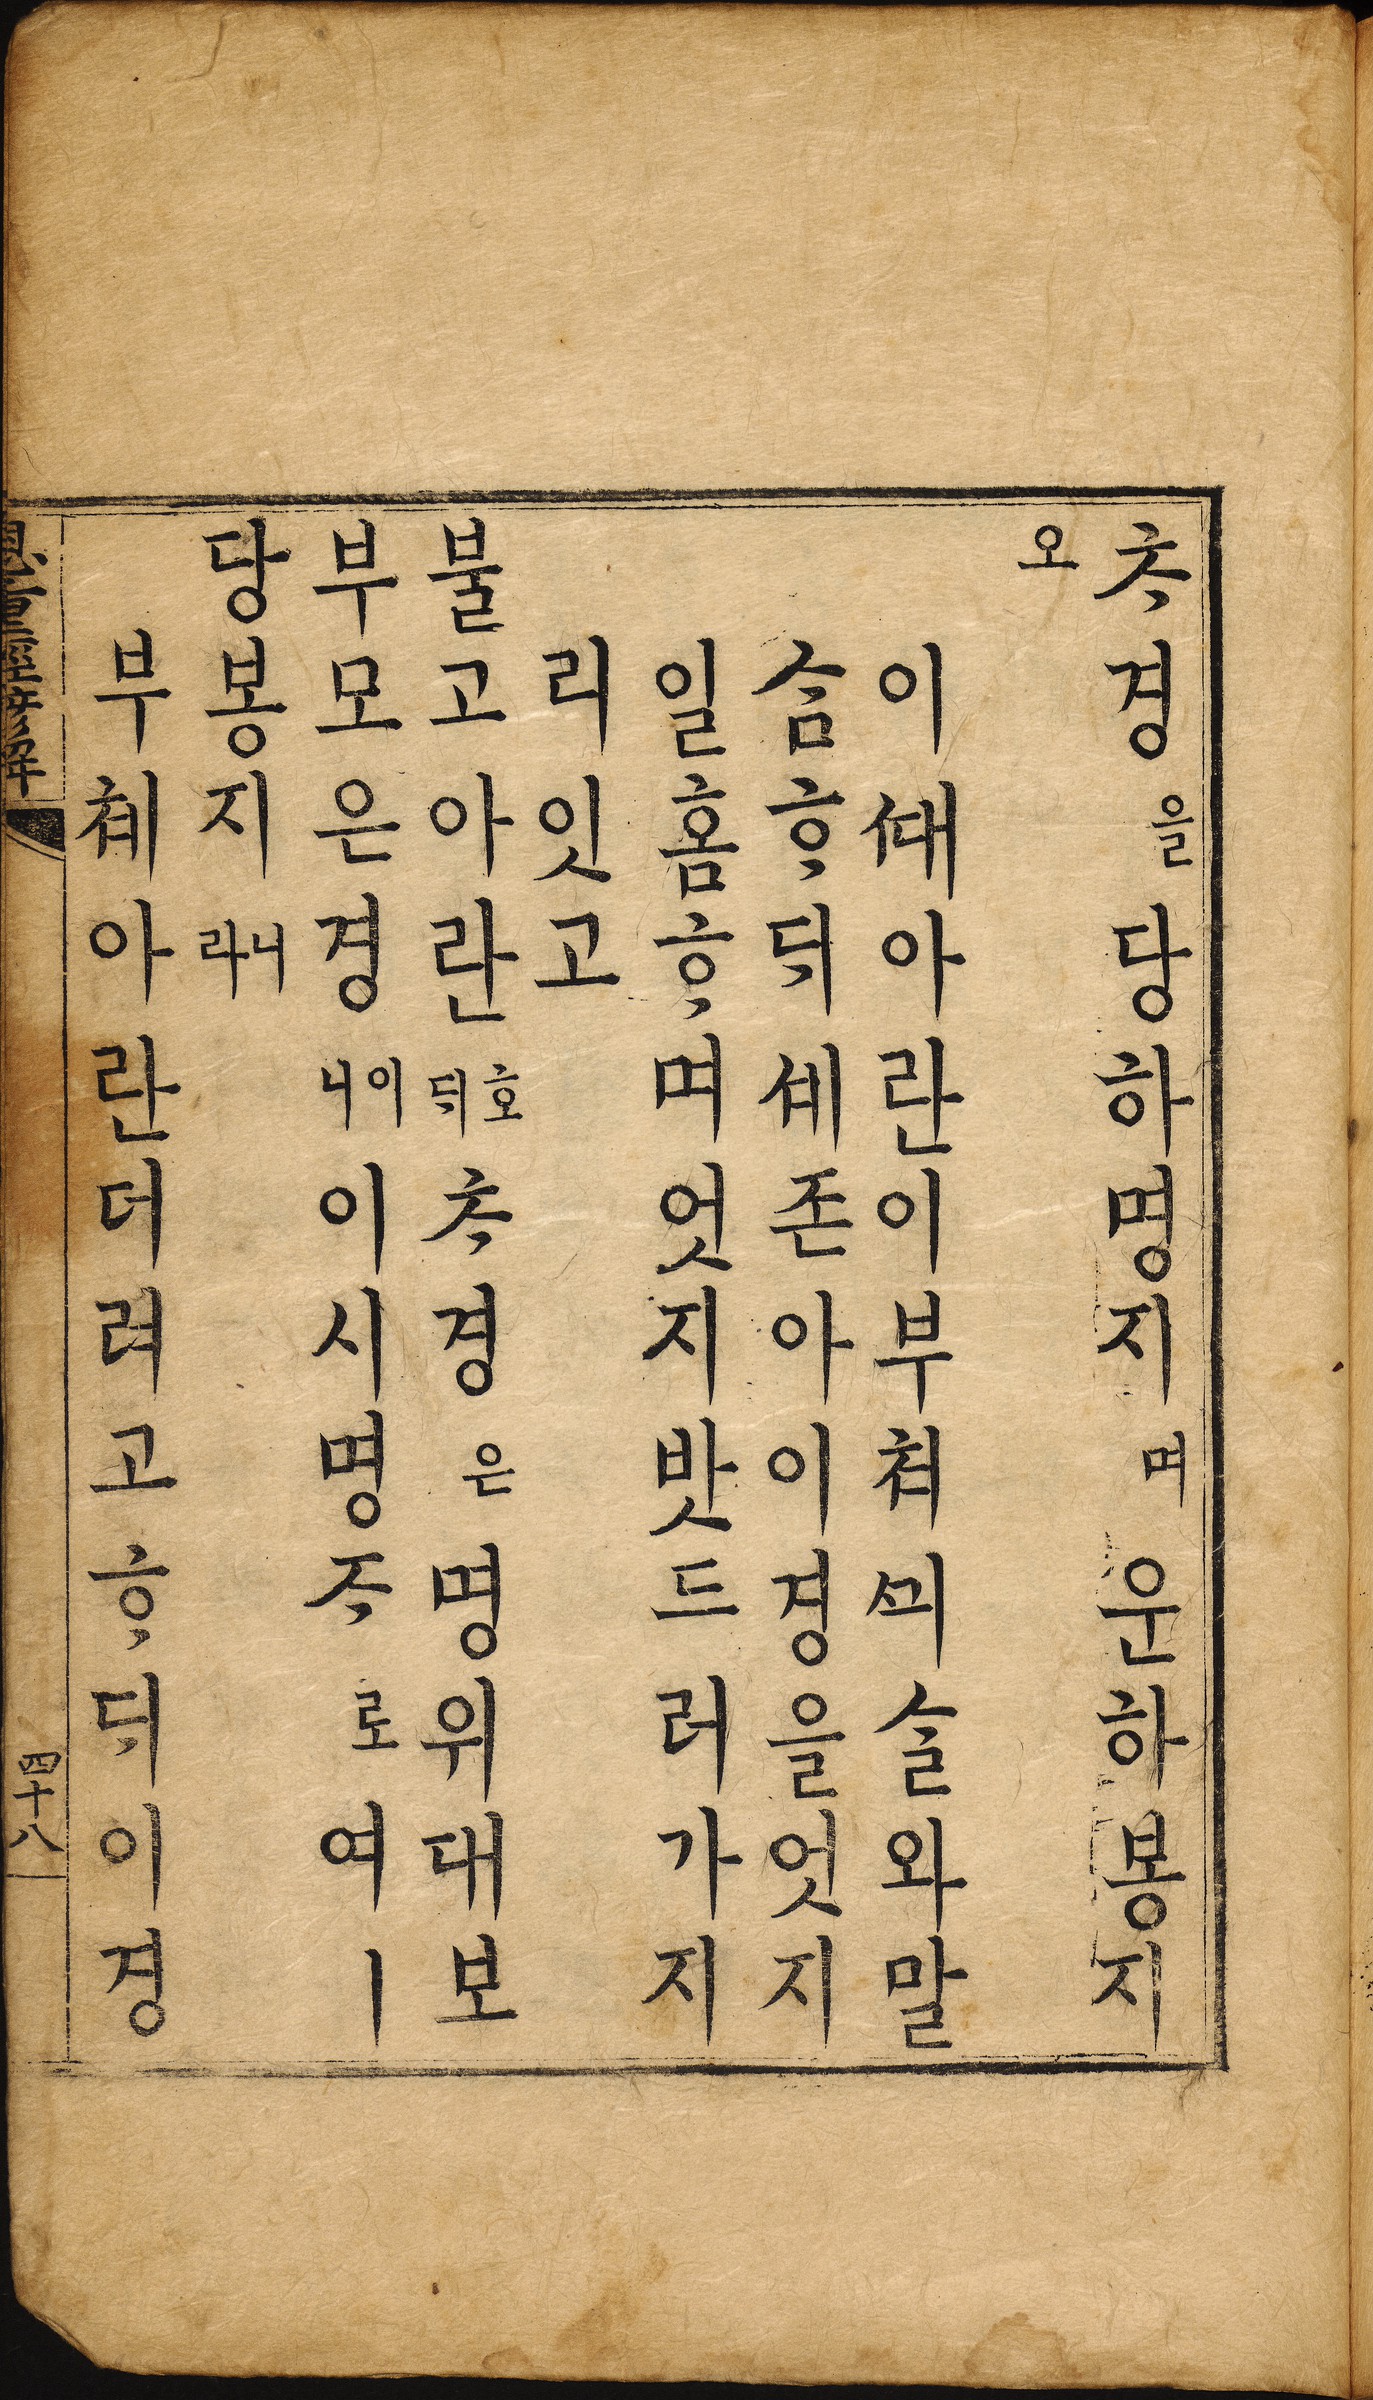 ᄎᆞ경을당하명지며운하봉지
오
이ᄯᅢ아란이부쳐ᄭᅴᄉᆞᆯ와말
ᄉᆞᆷᄒᆞᄃᆡ셰존아이경을엇지
일홈ᄒᆞ며엇지밧드러가지
리잇고
불고아란호ᄃᆡᄎᆞ경은명위대보
부모은경이니이시명ᄌᆞ로여ㅣ
당봉지니라
부쳬아란더려고ᄒᆞᄃᆡ이경
四十八